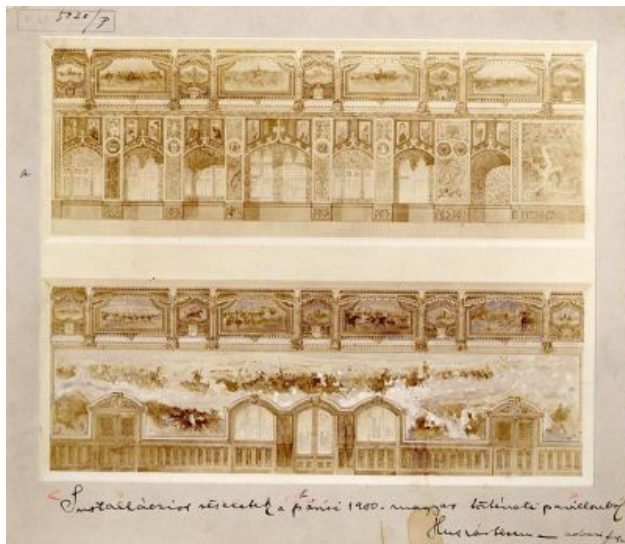 5020/P
a
Installácziós részletek a párisi 1900. magyar történeti pavillonból
Huszárterem —